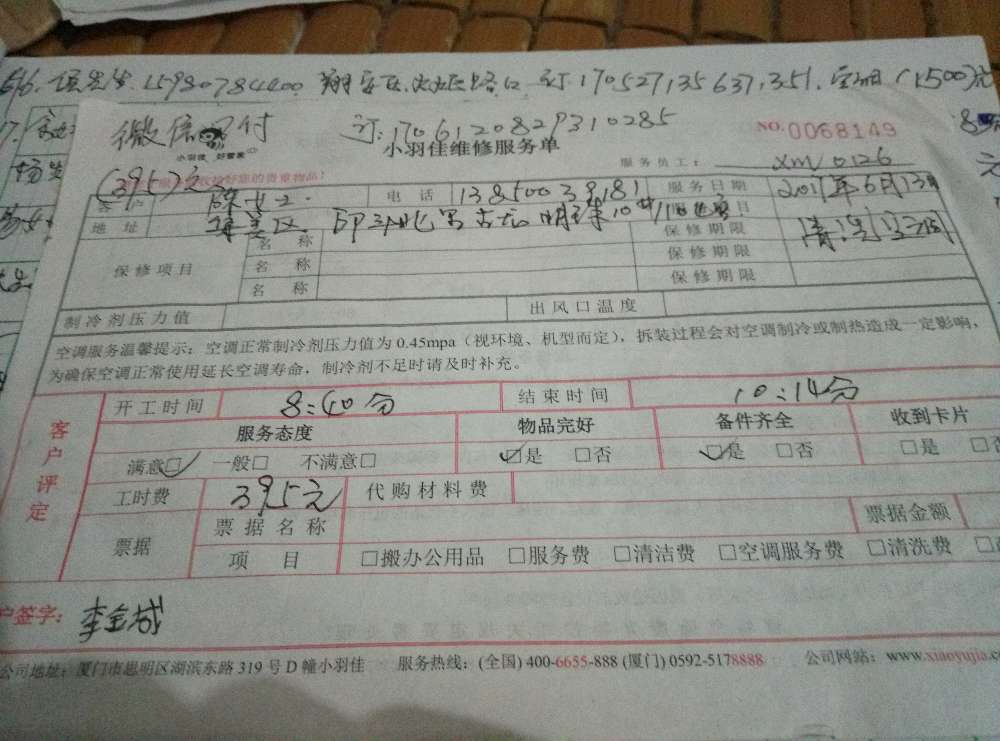 项先生 15980784400 订170527135637351 (1500)元
微信 付 订:1706120829310285 NO.0068149
小羽佳 好管家 小羽佳维修服务单
服务员工: xm0126
(395)元 的贵重物品!
客户 陈女士 电话 13850039181 服务日期 2017年6月13日
地址 集美区 保修期限 清洗空调
保修项目 名称
名称 保修期限
名称 保修期限
制冷剂压力值 出风口温度
空调服务温馨提示:空调正常制冷剂压力值为 0.45mpa(视环境、机型而定),拆装过程会对空调制冷或制热造成一定影响,
为确保空调正常使用延长空调寿命,制冷剂不足时请及时补充。
客户评定 开工时间 8:40分 结束时间 10:14分
服务态度 物品完好 备件齐全 收到卡片
满意□ 一般□ 不满意□ □是 □否 □是 □否 □是 □否
工时费 395元 代购材料费
票据 票据名称 票据金额
项目 □搬办公用品 □服务费 □清洁费 □空调服务费 □清洗费
户签字: 李金城
公司地址:厦门市思明区湖滨东路 319 号 D 幢小羽佳 服务热线:(全国) 400-6655-888 (厦门) 0592-5178888 公司网站:www.xiaoyujia.c